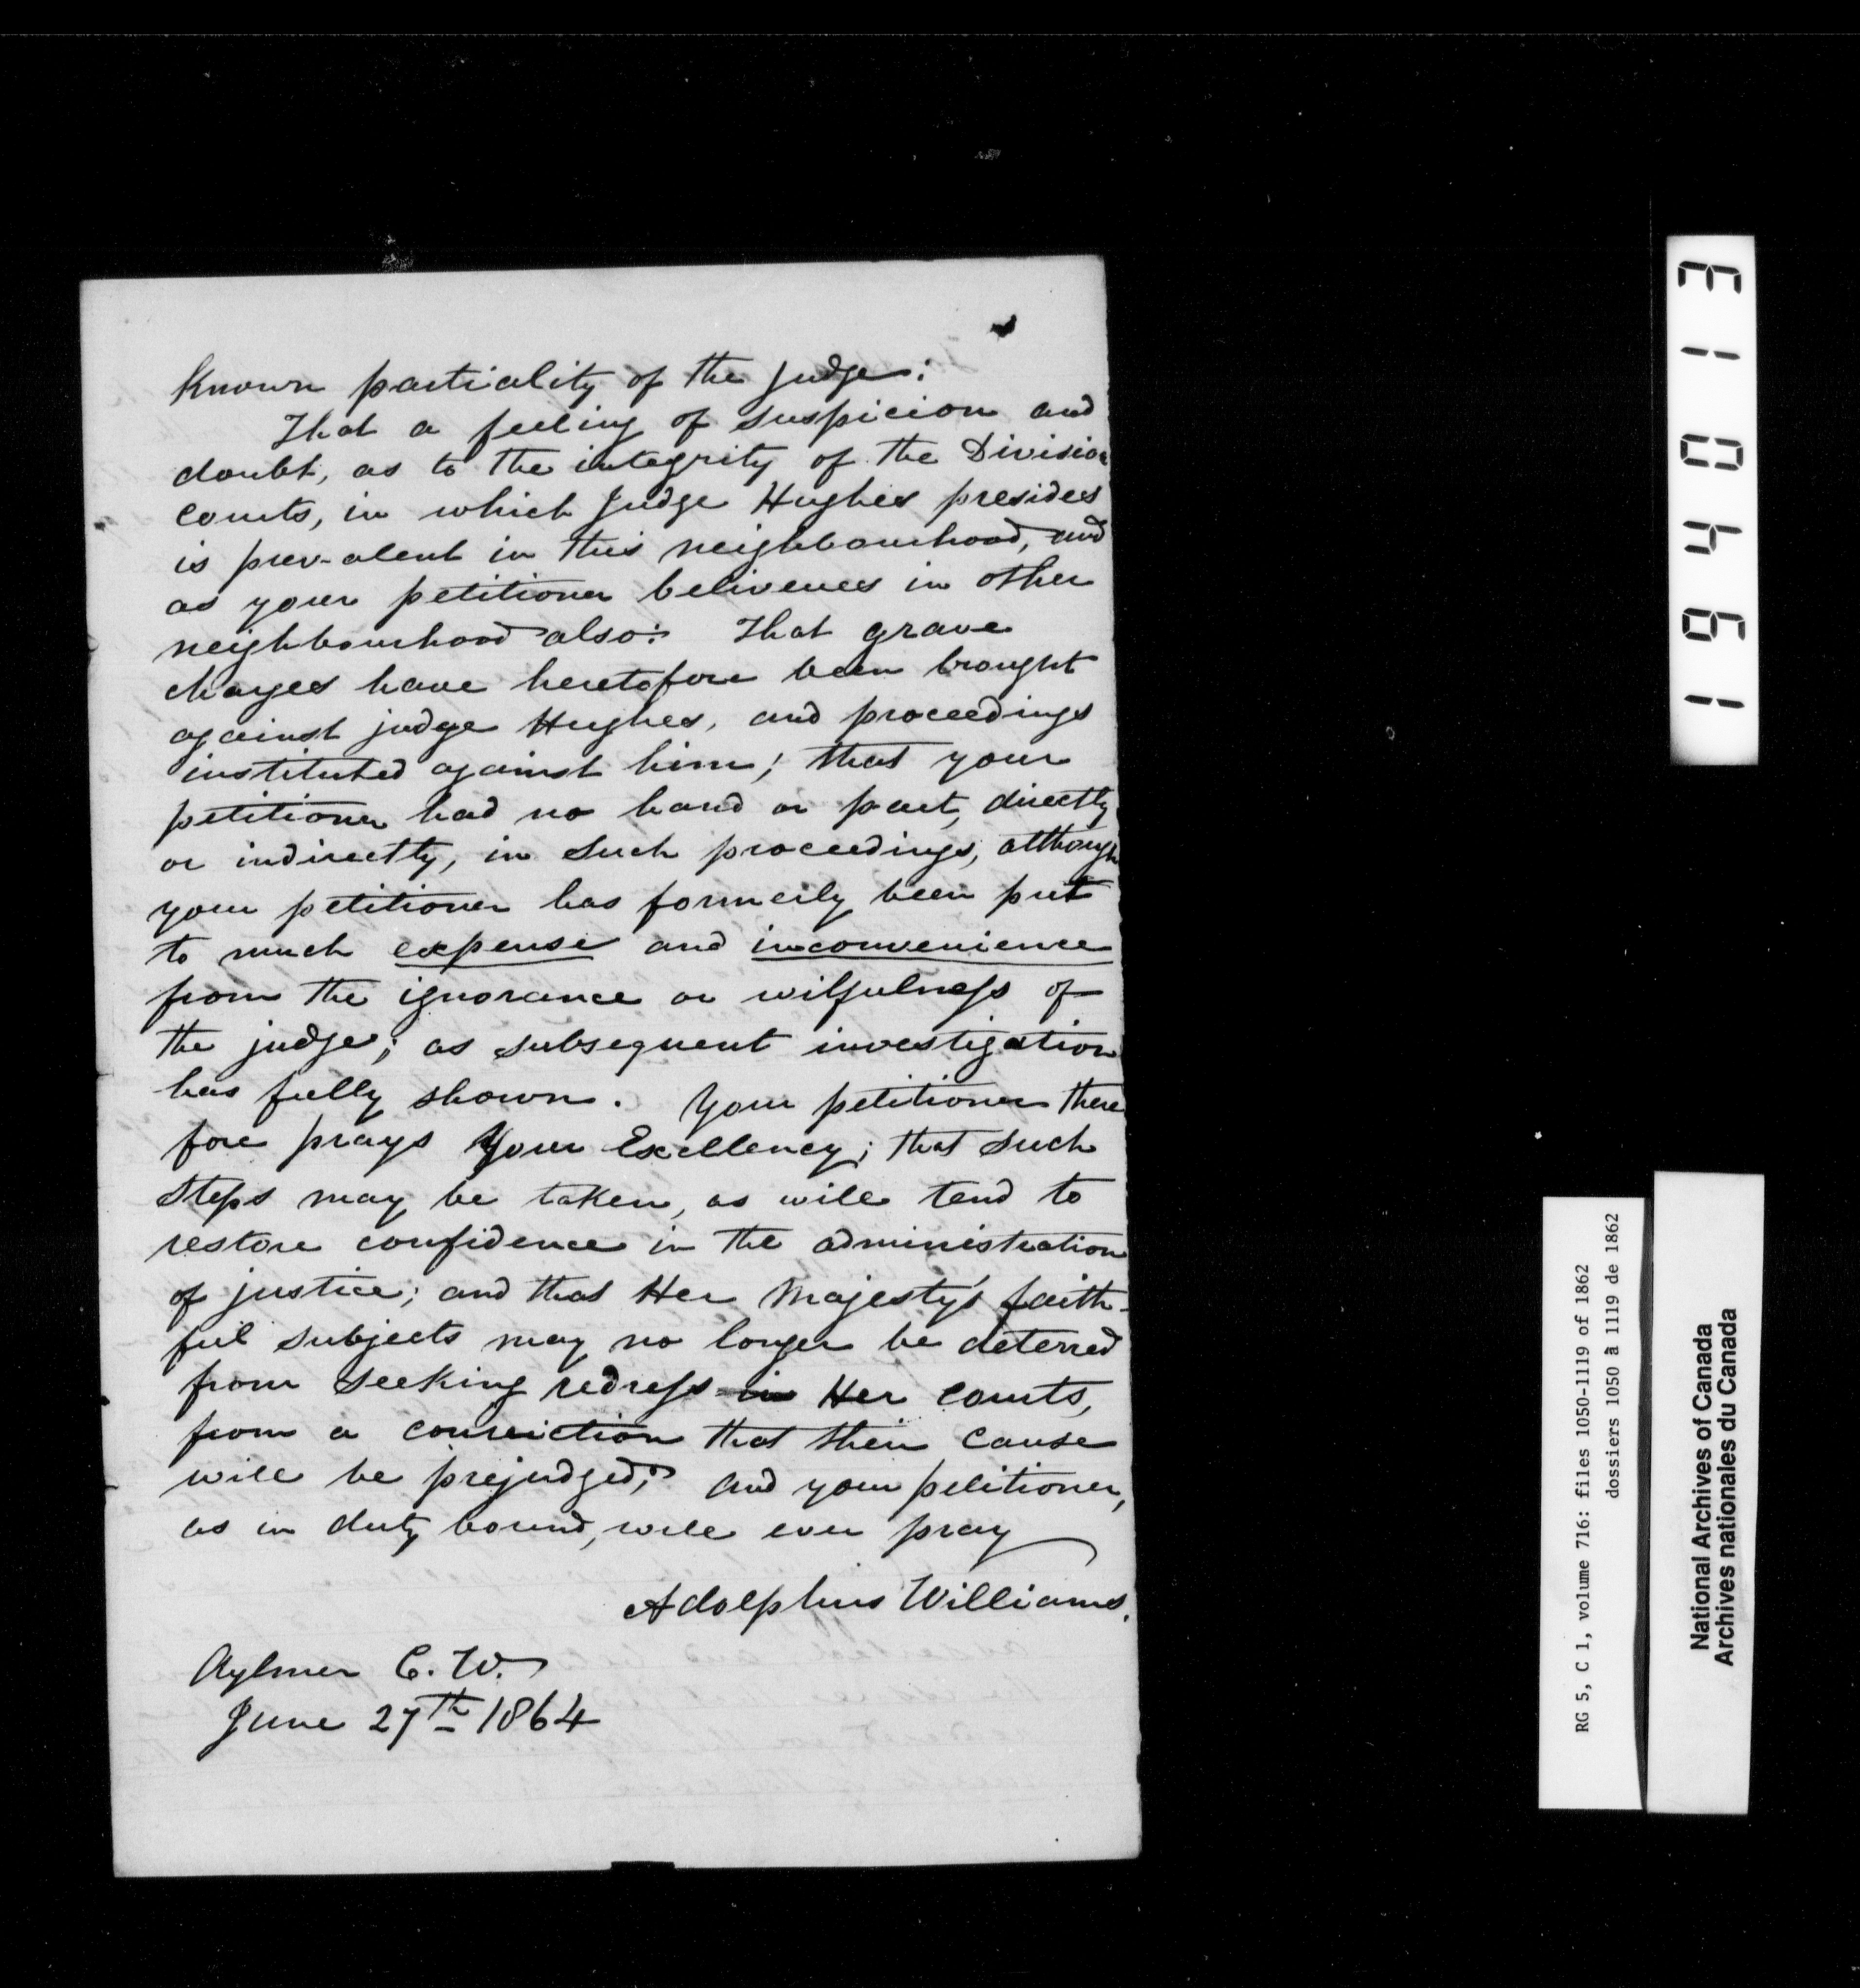 Known partiality of the judge:
That a feeling of suspicion and
doubt, as to the integrity of the Division
courts, in which Judge Hughes presides
is prev-alent in this neighbourhood, and
as your petitioner beliveves in other
neighbourhood also: That grave
charges have heretofore been brought
against judge Hughes, and proceedings
instituted against him; that your
petitioner had no hand or part, directly
or indirectly, in such proceedings, although
your petitioner has formerly been put
to much expense and inconvenience
from the ignorance or wilfulness of
the judge; as subsequent investigation
has fully shown. Your petitioner there
fore prays Your Excellency; that such
steps may be taken, as will tend to
restore confidence in the administration
of justice; and that Her Majesty's faith-
ful subjects may no longer be deterred
from seeking redress in Her courts,
from a conviction that their cause
will be prejudged; and your petitioner,
as in duty bound, will ever pray
Adolphus Williams.
Aylmer C. W.
June 27th 1864
194013
RG 5, C 1, volume 716: files 1050-1119 of 1862
dossiers 1050 à 1119 de 1862
National Archives of Canada
Archives nationales du Canada